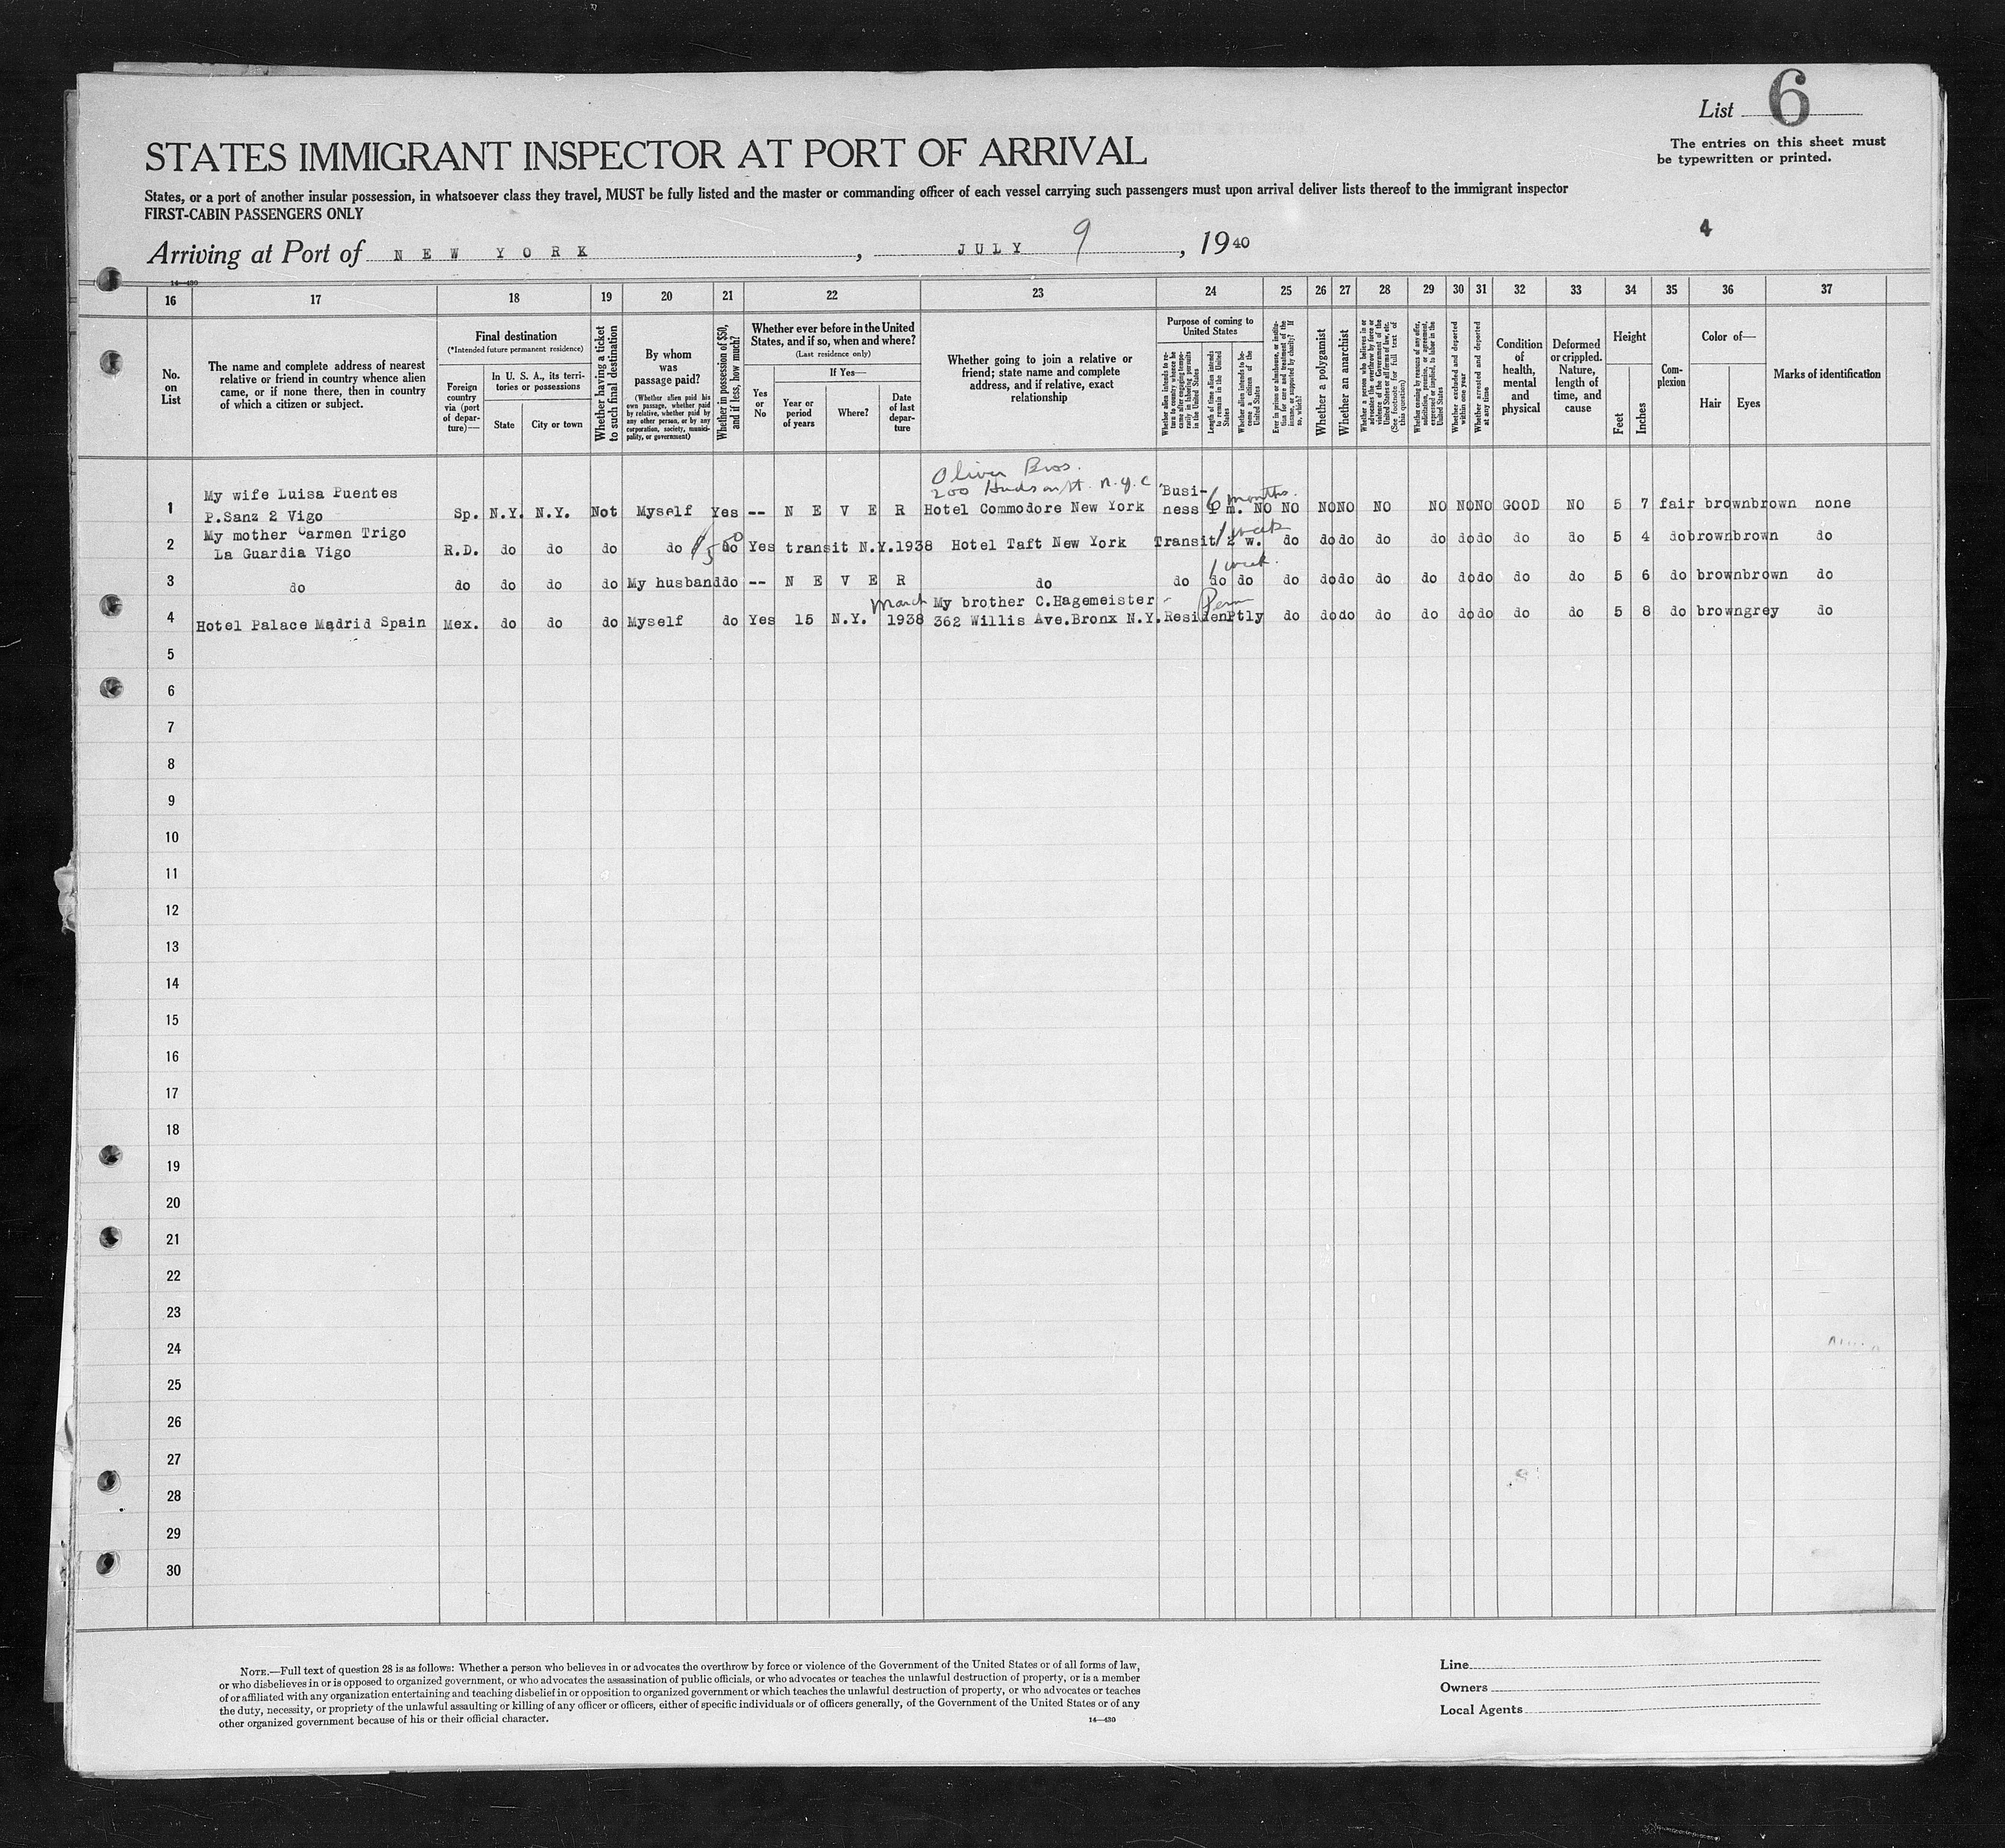 List 6
The entries on this sheet must
be typewritten or printed.
STATES IMMIGRANT INSPECTOR AT PORT OF ARRIVAL
States, or a port of another insular possession, in whatsoever class they travel, MUST be fully listed and the master or commanding officer of each vessel carrying such passengers must upon arrival deliver lists thereof to the immigrant inspector
FIRST-CABIN PASSENGERS ONLY
4
Arriving at Port of NEW YORK, JULY 9, 1940
14—430
16 17 18 19 20 21 22 23 24 25 26 27 28 29 30 31 32 33 34 35 36 37
No. on List
The name and complete address of nearest
relative or friend in country whence alien
came, or if none there, then in country
of which a citizen or subject.
Final destination
(*Intended future permanent residence)
Foreign country via (port of departure)—
In U. S. A., its territories or possessions
State
City or town
Whether having a ticket to such final destination
By whom was passage paid?
(Whether alien paid his own passage, whether paid by relative, whether paid by any other person, or by any corporation, society, municipality, or government)
Whether in possession of $50, and if less, how much?
Whether ever before in the United States, and if so, when and where?
(Last residence only)
Yes or No
If Yes—
Year or period of years
Where?
Date of last departure
Whether going to join a relative or
friend; state name and complete
address, and if relative, exact
relationship
Purpose of coming to United States
Whether alien intends to return to country whence he came after engaging temporarily in laboring pursuits in the United States
Length of time alien intends to remain in the United States
Whether alien intends to become a citizen of the United States
Ever in prison or almshouse, or institution for care and treatment of the insane, or supported by charity? If so, which?
Whether a polygamist
Whether an anarchist
Whether a person who believes in or advocates the overthrow by force or violence of the Government of the United States or all forms of law, etc. (See footnote for full text of this question)
Whether coming by reason of any offer, solicitation, promise, or agreement, expressed or implied, to labor in the United States
Whether excluded and deported within one year
Whether arrested and deported at any time
Condition of health, mental and physical
Deformed or crippled. Nature, length of time, and cause
Height
Feet
Inches
Complexion
Color of—
Hair
Eyes
Marks of identification
Oliver Bros.
200 Hudson St. N.Y.C
1 My wife Luisa Puentes
P.Sanz 2 Vigo Sp. N.Y. N.Y. Not Myself Yes -- NEVER Hotel Commodore New York Business 6 months. NO NO NO NO NO NO NO NO GOOD NO 5 7 fair brown brown none
2 My mother Carmen Trigo
La Guardia Vigo R.D. do do do do $500 do Yes transit N.Y. 1938 Hotel Taft New York Transit 1 week 2 w. do do do do do do do do do 5 4 do brown brown do
3 do do do do do My husband do -- NEVER do do 1 week. do do do do do do do do do do do 5 6 do brown brown do
4 Hotel Palace Madrid Spain Mex. do do do Myself do Yes 15 N.Y. March 1938 My brother C.Hagemeister
362 Willis Ave.Bronx N.Y. Perm Residen Ptly do do do do do do do do do 5 8 do brown grey do
5
6
7
8
9
10
11
12
13
14
15
16
17
18
19
20
21
22
23
24
25
26
27
28
29
30
NOTE.—Full text of question 28 is as follows: Whether a person who believes in or advocates the overthrow by force or violence of the Government of the United States or of all forms of law,
or who disbelieves in or is opposed to organized government, or who advocates the assassination of public officials, or who advocates or teaches the unlawful destruction of property, or is a member
of or affiliated with any organization entertaining and teaching disbelief in or opposition to organized government or which teaches the unlawful destruction of property, or who advocates or teaches
the duty, necessity, or propriety of the unlawful assaulting or killing of any officer or officers, either of specific individuals or of officers generally, of the Government of the United States or of any
other organized government because of his or their official character.
14—430
Line
Owners
Local Agents